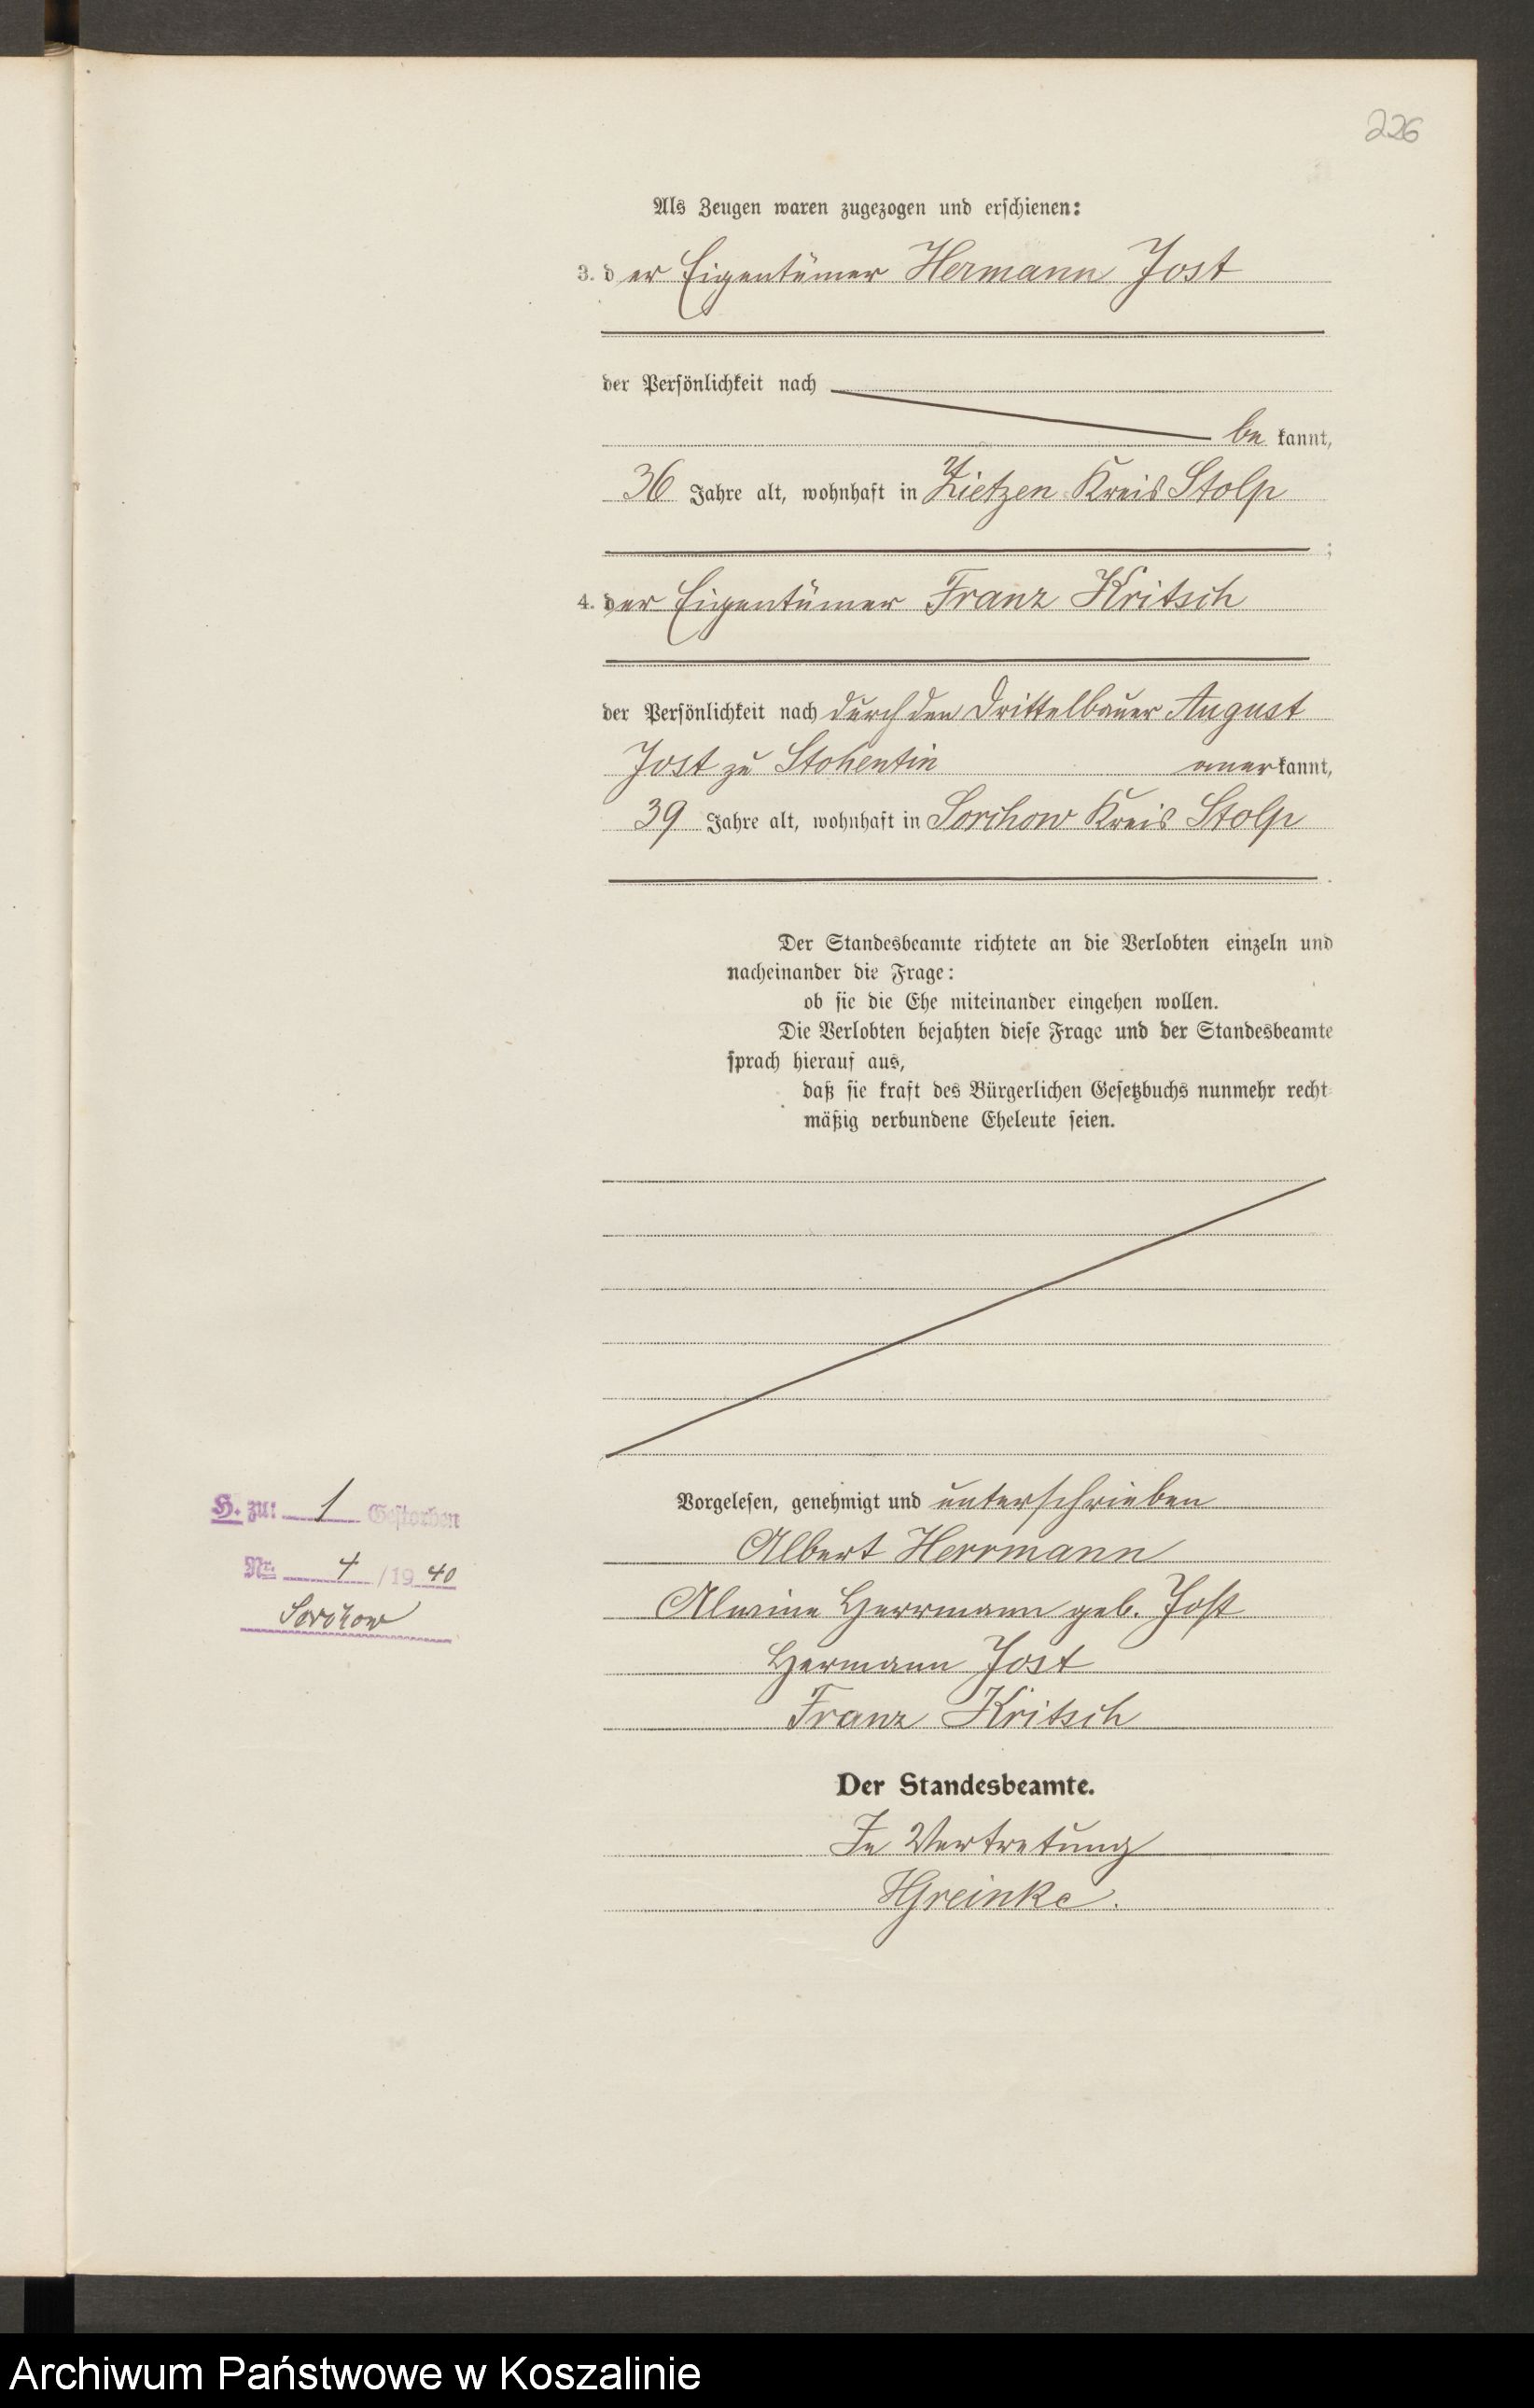 226
Als Zeugen waren zugezogen und erschienen:
3. der Eigentümer Hermann Jost
der Persönlichkeit nach
be kannt,
36 Jahre alt, wohnhaft in Zietzen Kreis Stolp
;
4. der Eigentümer Franz Kritsch
der Persönlichkeit nach durch den Drittelbauer August
Jost zu Stohentin anerkannt,
39 Jahre alt, wohnhaft in Sorchow Kreis Stolp
.
Der Standesbeamte richtete an die Verlobten einzeln und
nacheinander die Frage:
ob sie die Ehe miteinander eingehen wollen.
Die Verlobten bejahten diese Frage und der Standesbeamte
sprach hierauf aus,
daß sie kraft des Bürgerlichen Gesetzbuchs nunmehr recht-
mäßig verbundene Eheleute seien.
Vorgelesen, genehmigt und unterschrieben
Albert Herrmann
Alwine Herrmann geb. Jost
Hermann Jost
Franz Kritsch
H. zu: 1 Gestorben
Nr. 4 /19 40
Sorchow
Der Standesbeamte.
In Vertretung
HGreinke.
Archiwum Państwowe w Koszalinie